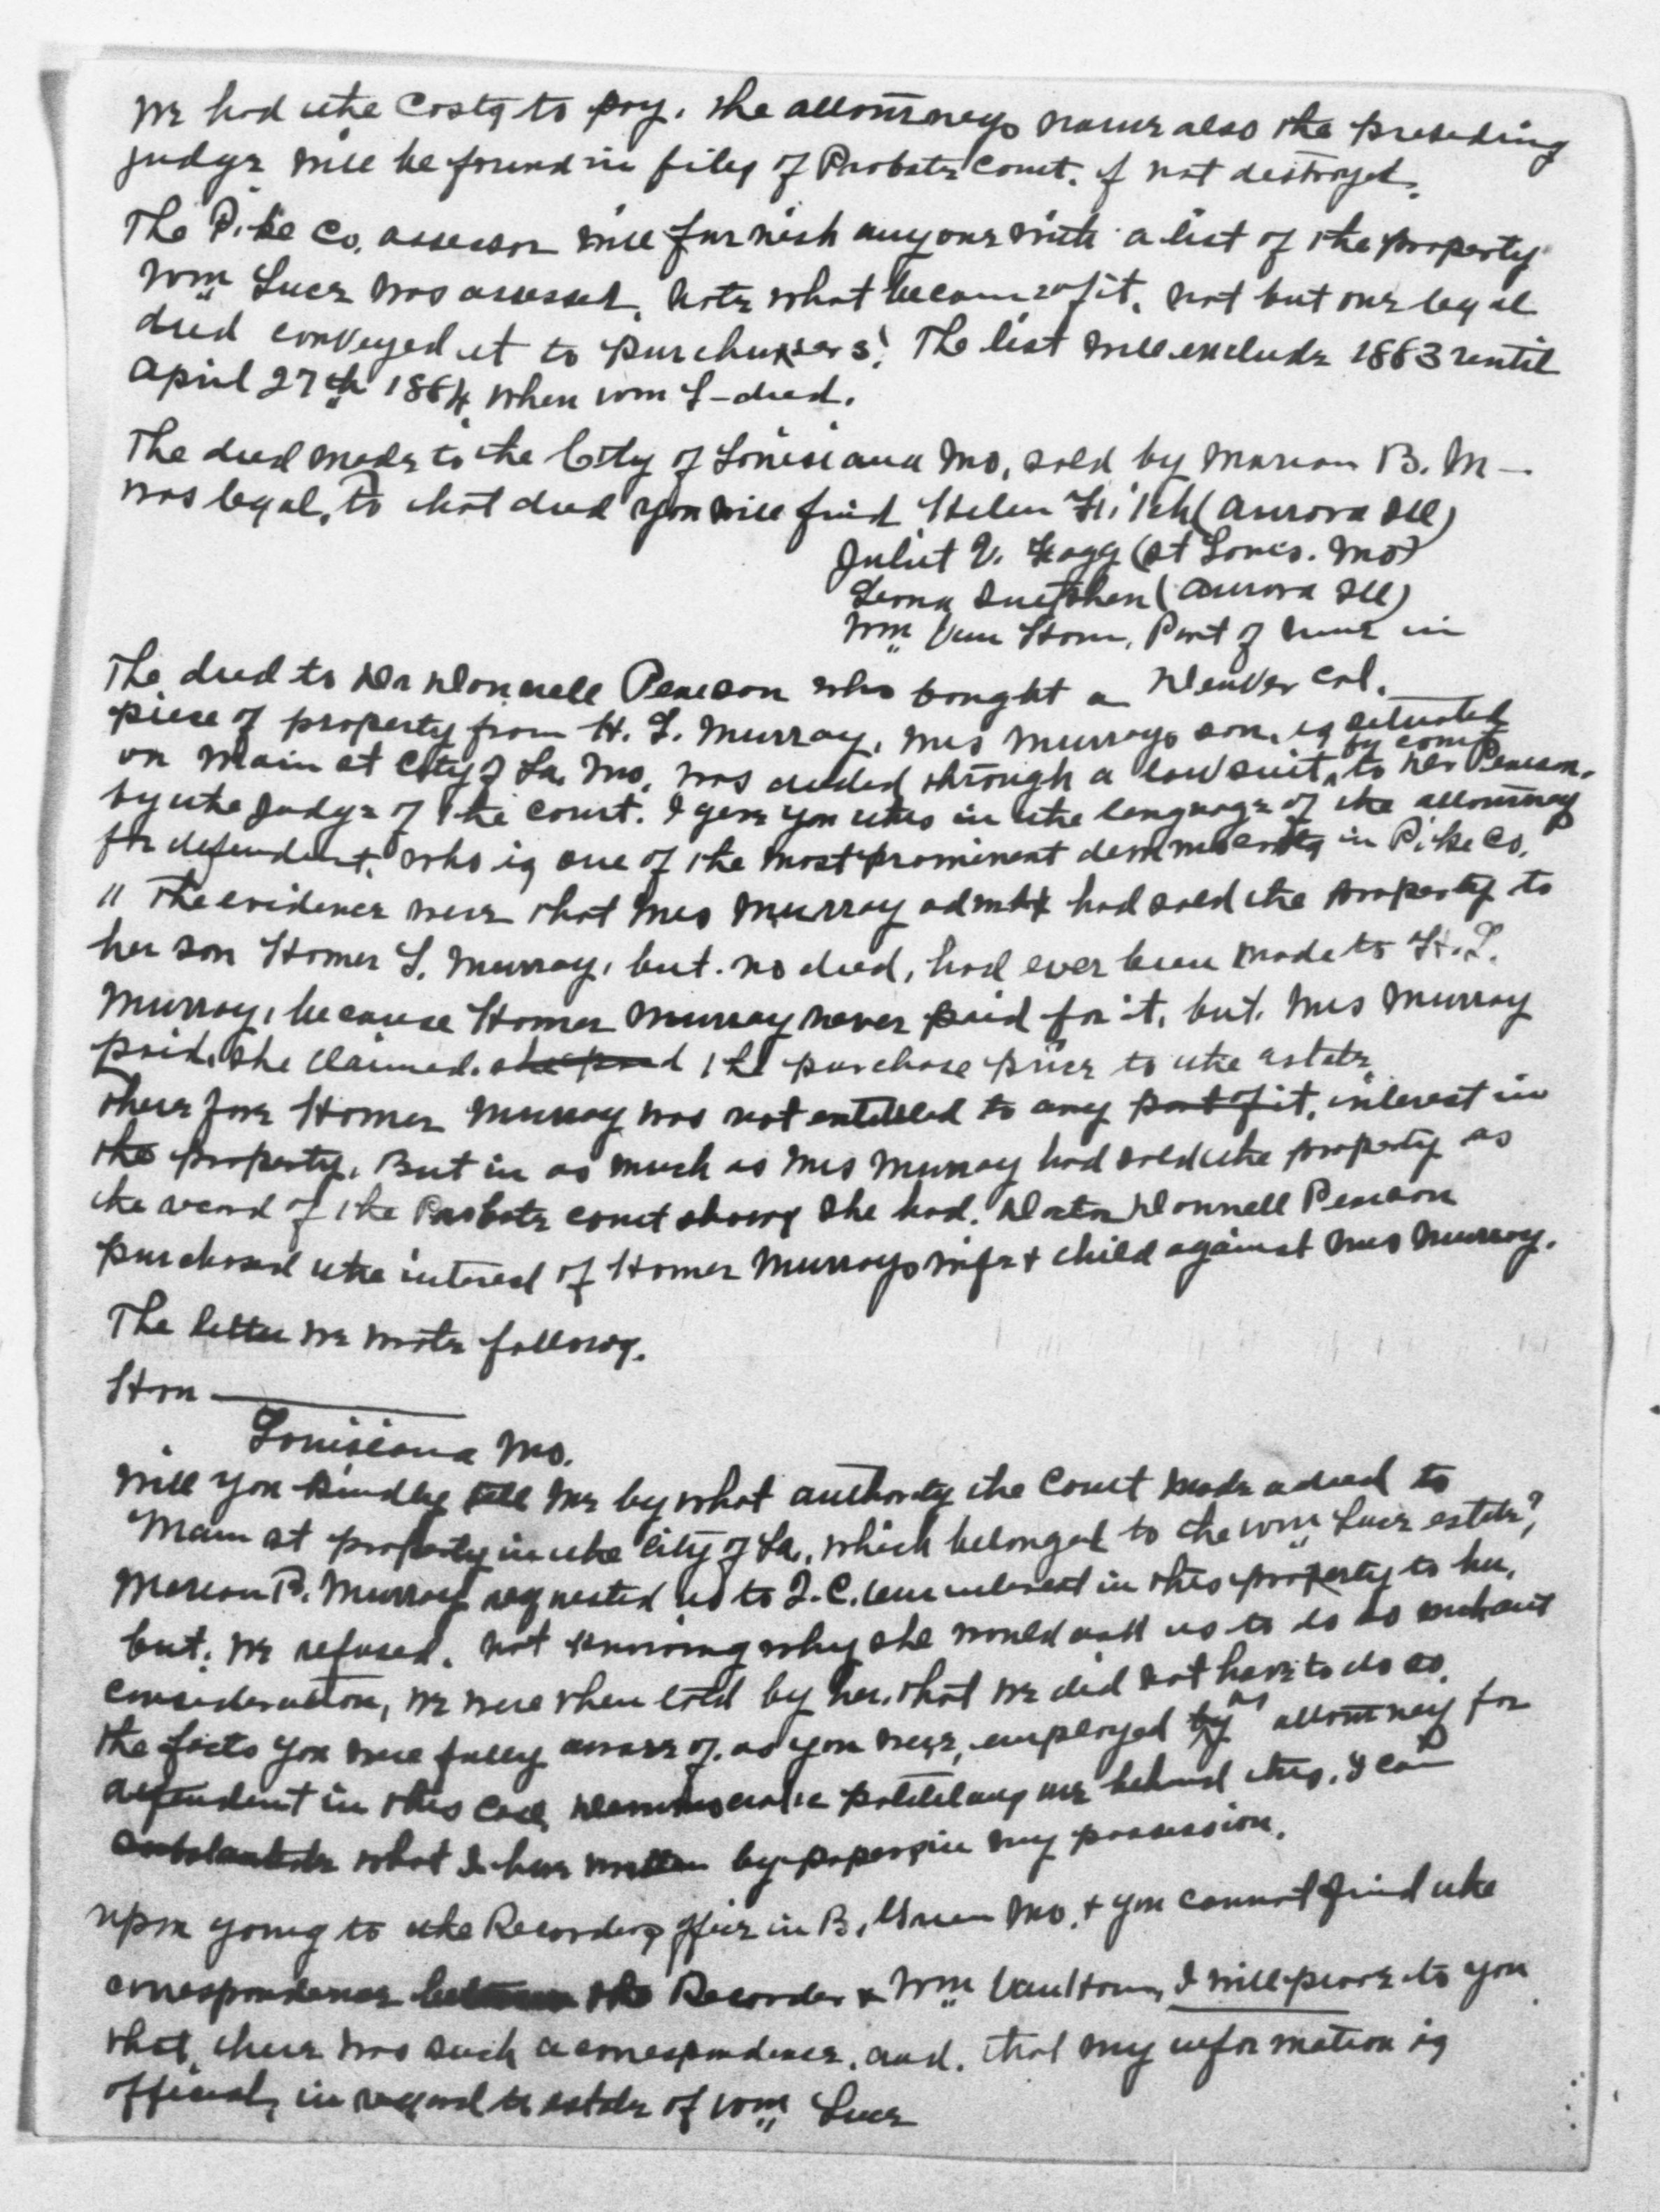 We had the costs to pay. The attourneys name also the preseding
judge will be found in files of Probate Court. if not destroyed.
The Pike Co, assessor will furnish anyone with a list of the property
Wm Luce was assessed. Note what became of it. Not but one legal
deed conveyed it to purchasers! The list will exclude 1863 until
April 27th 1864 when Wm L- died.
The deed made to the City of Louisiana Mo, sold by Marion B. M-
was legal, to that deed you will find Helen (Aurora Ill)
Juliet V. (St Louis. Mo)
Leona (Aurora Ill)
Wm Van Horn, Part of time in
Denver Col.
The deed to Dr Donnell Pearson who bought a
piece of property from H. L. Murray, Mrs Murrays son, is situated
on Main St City of La, Mo, was deeded through a lawsuit by court to Dr Pearson.
by the Judge of the court. I give you this in the language of the attourney
for defendent, who is one of the most prominent in Pike Co.
" The evidence were that Mrs Murray had sold the property to
her son Homer L. Murray, but no deed, had ever been made to H. L.
Murray, because Homer Murray never paid for it, but. Mrs Murray
paid, she claimed. she paid the purchase price to the estate,
therefore Homer Murray was not entitled to any part of it, interest in
the property. But in as much as Mrs Murray had sold the property as
the record of the Probate court shows she had. Doctor Donnell Pearson
purchased the interest of Homer Murrays wife & child against Mrs Murray.
The letter we wrote follows.
Hon
Louisiana Mo.
Will you kindly tell me by what authority the Court made a deed to
Main st property in the City of La, which belonged to the Wm Luce estate?
Marion B. Murray requested us to Q. C. our interest in this property to her,
but. we refused. not knowing why she would ask us to do so without
consideration, we were then told by her, that we did not have to do so.
the facts you were fully aware of. as you were, employed by as attourney for
defendent in this case, are behind this. I can
what I have written by papers in my possession.
upon going to the Recorders office in B. Green Mo. & you cannot find the
correspondence between the Recorder & Wm Van Horn, I will prove to you
that, there was such a correspondence, and. that my information is
official, in regard to estate of Wm Luce